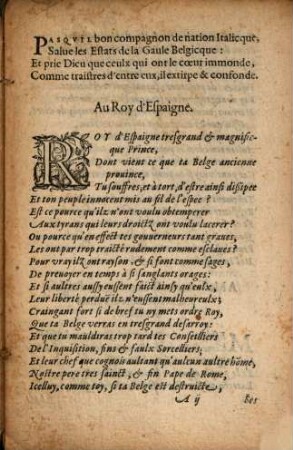 PASQVIL bon compagnon de nation Italicque,
Salue les Estats de la Gaule Belgicque :
Et prie Dieu que ceulx qui ont le cœur immonde,
Comme traistres d'entre eux, il extirpe & confonde.
Au Roy d'Espaigne.
ROY d'Espaigne tresgrand & magnific-
que Prince,
Dont vient ce que ta Belge ancienne
prouince,
Tu souffres, et à tort, d'estre ainsi dissipée
Et ton peuple innocent mis au fil de l'espee ?
Est ce pource qu'ilz n'ont voulu obtemperer
Aux tyrans qui leurs droictz ont voulu lacerer ?
Ou pource qu'en effect tes gouuerneurs tant graues,
Les ont par trop traicté rudement comme esclaues ?
Pour vray ilz ont rayson & si font comme sages,
De preuoyer en temps à si sanglants orages:
Et si aultres aussy eussent faict ainsy qu'eulx,
Leur liberté perdue ilz n'eussent malheureulx;
Craingant fort si de bref tu ny mets ordre Roy,
Que ta Belge verras en tresgrand desarroy:
Et que tu mauldiras trop tard tes Conseilliers
De l'Inquisition, fins & faulx Sorcelliers;
Et leur chef que cognoi aultant qu'aulcun aultre hõme,
Nostre pere tres sainct, & fin Pape de Rome,
Icelluy, comme toy, si ta Belge est destruicte,
A ij